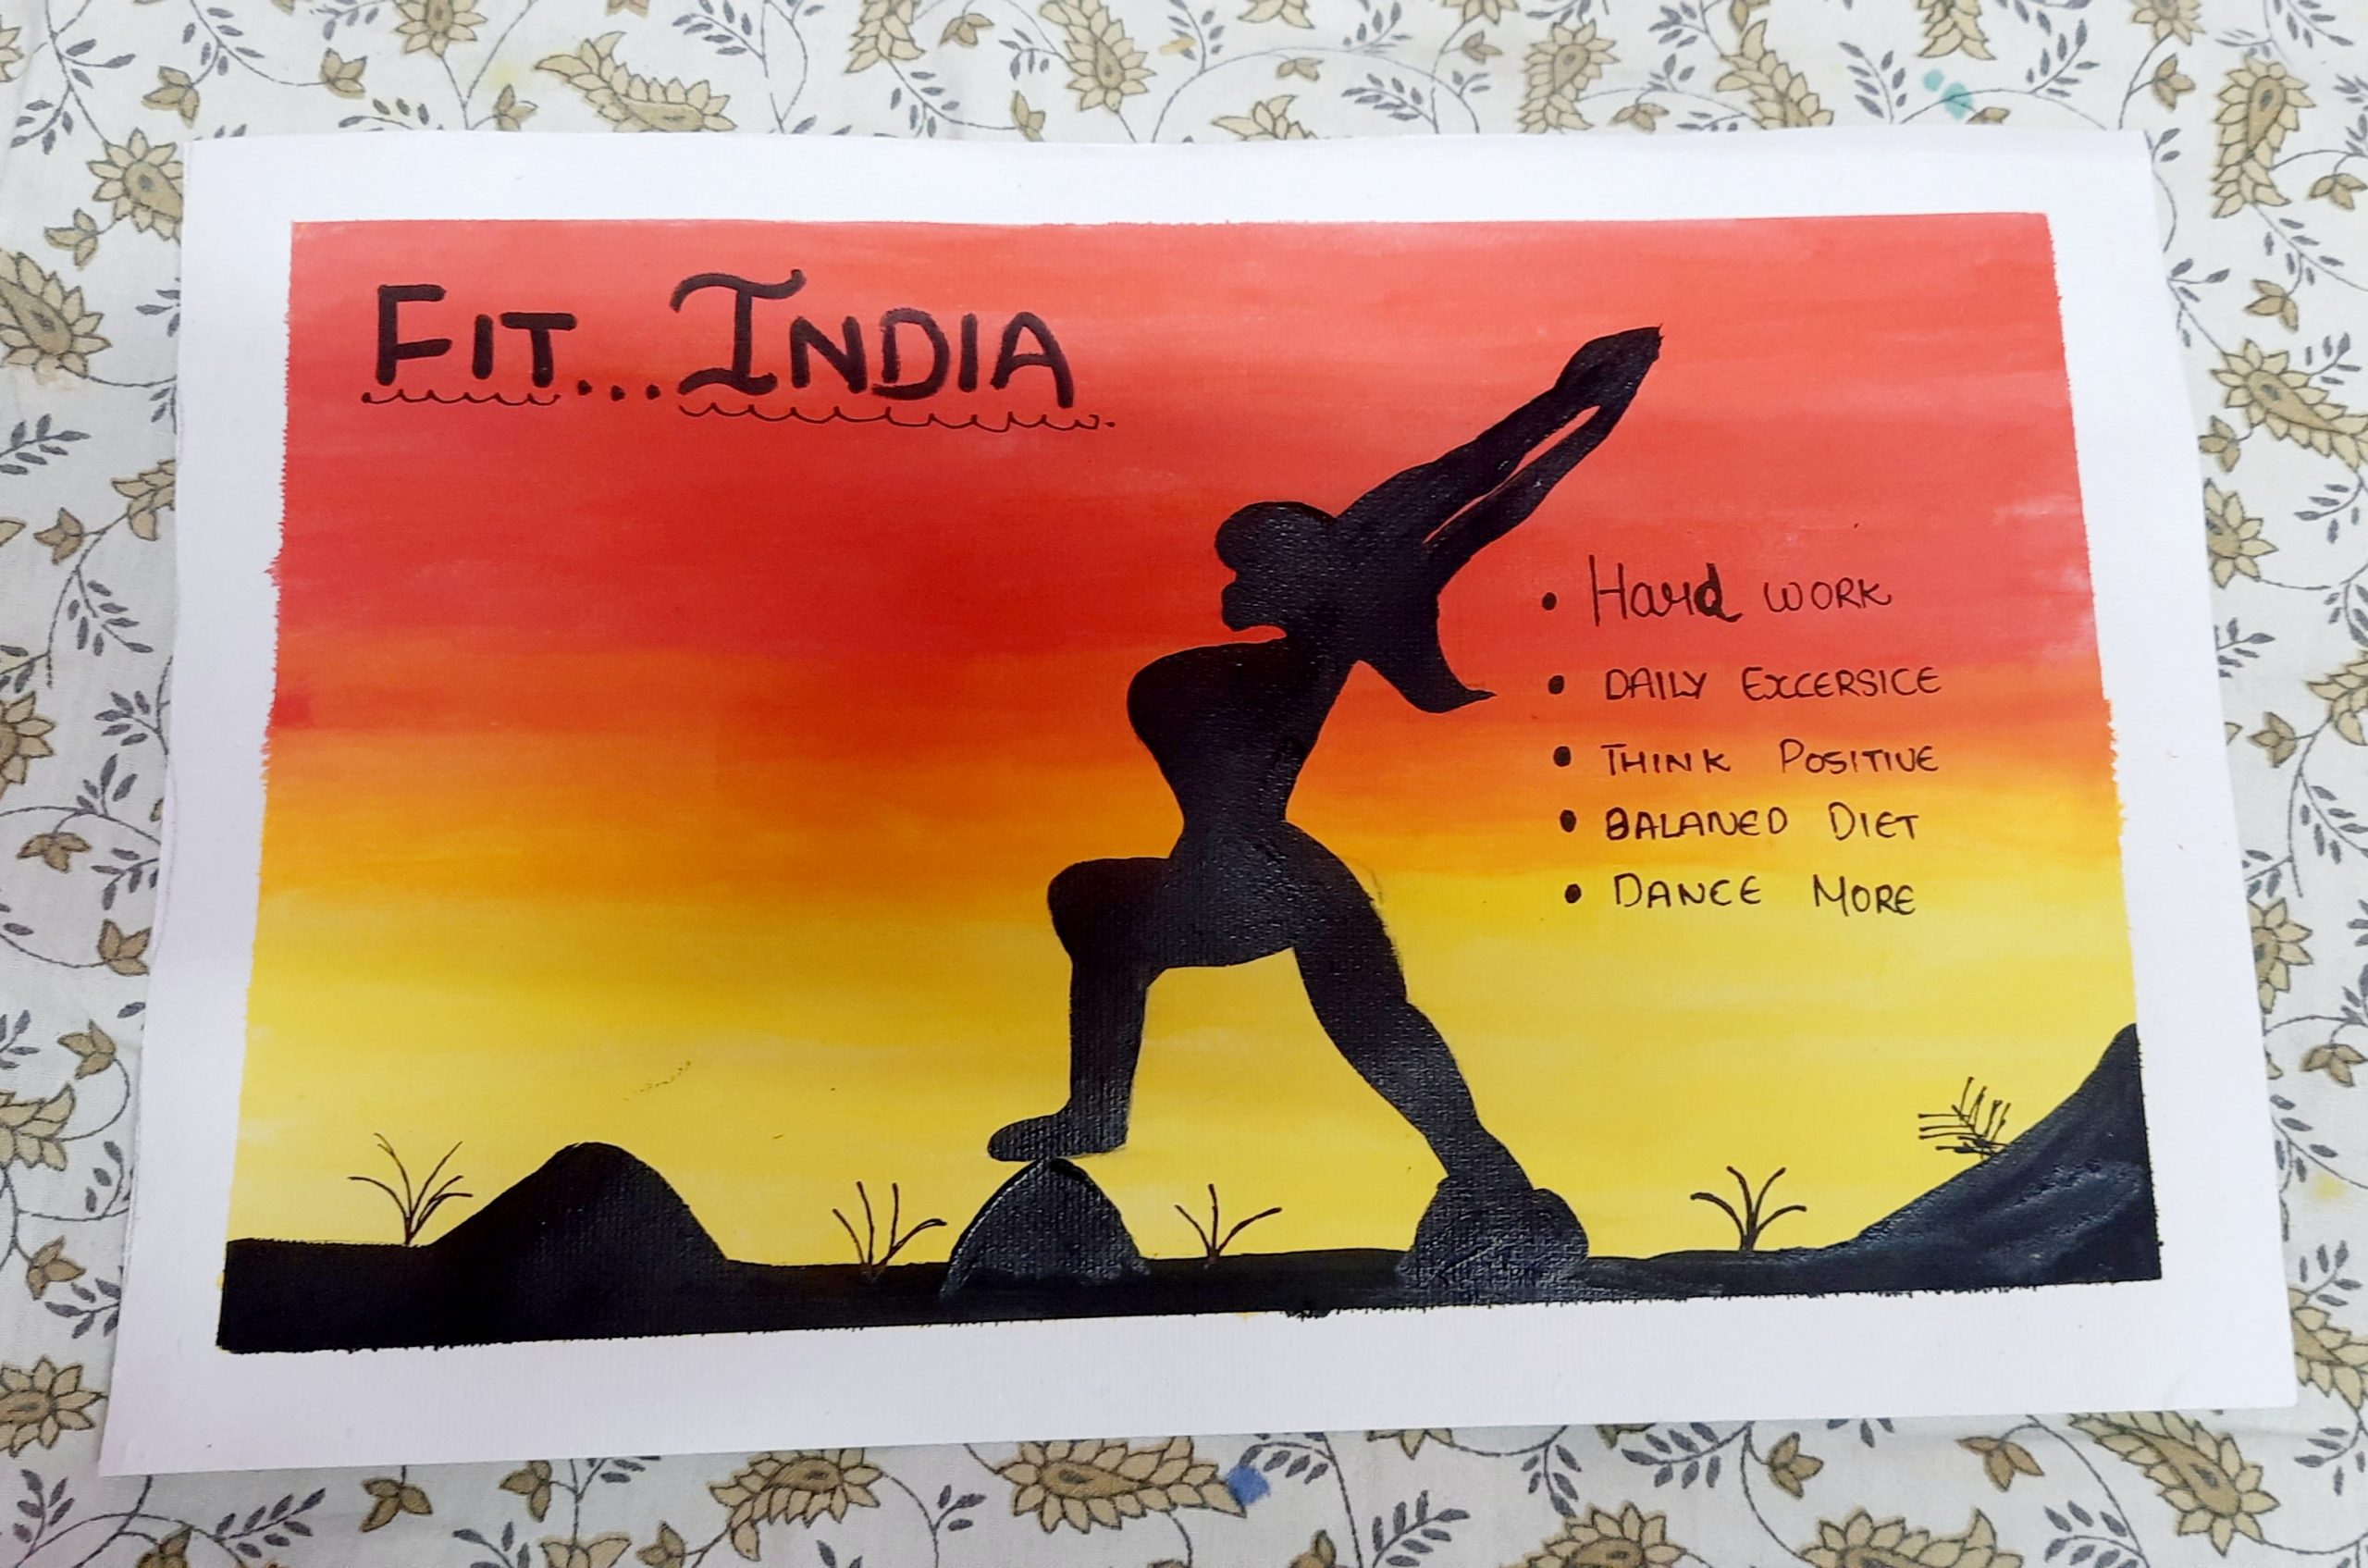 FIT... INDIA
• Hard WORK
• DAILY EXCERSICE
• THINK POSITIVE
• BALANED DIET
• DANCE MORE